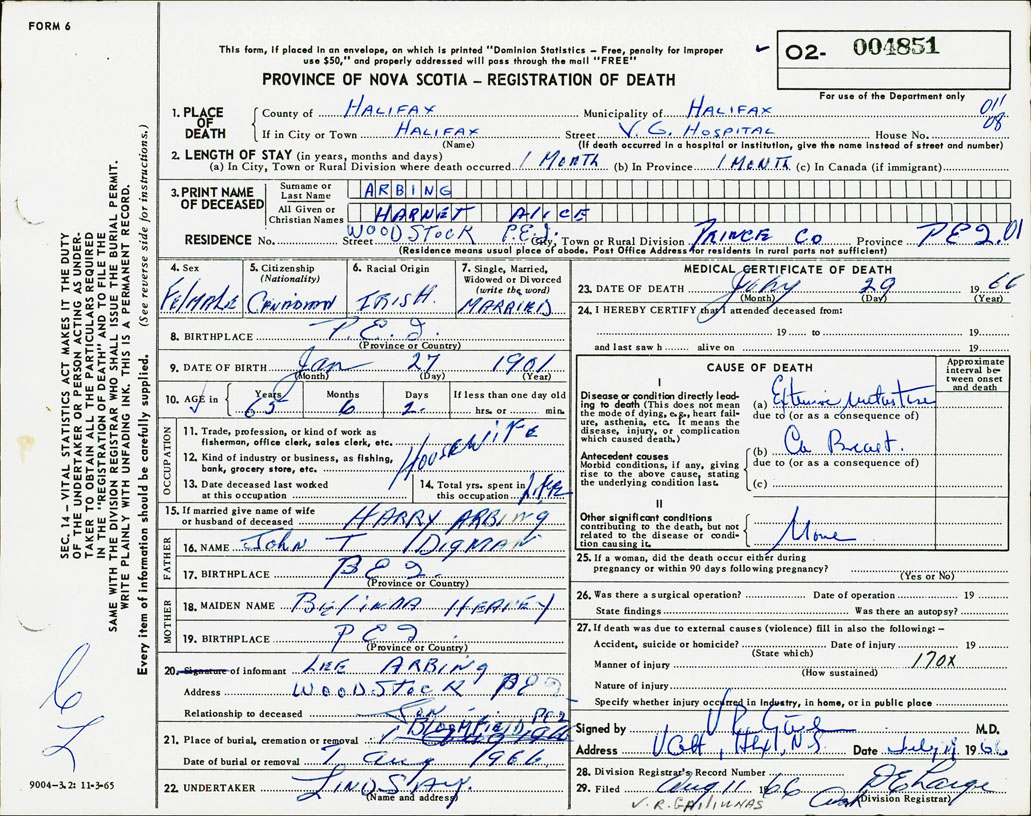 FORM 6
This form, if placed in an envelope, on which is printed "Dominion Statistics – Free, penalty for improper
use $50," and properly addressed will pass through the mail "FREE"
O2- 004851
PROVINCE OF NOVA SCOTIA – REGISTRATION OF DEATH
For use of the Department only
1. PLACE OF DEATH
County of HALIFAX Municipality of HALIFAX 011
If in City or Town HALIFAX Street V. G. HOSPITAL House No. 08
(Name) (If death occurred in a hospital or institution, give the name instead of street and number)
2. LENGTH OF STAY (in years, months and days)
(a) In City, Town or Rural Division where death occurred 1 MONTH (b) In Province 1 MONTH (c) In Canada (if immigrant)
3. PRINT NAME OF DECEASED
Surname or Last Name ARBING
All Given or Christian Names HARNET ALICE
RESIDENCE No. Street WOODSTOCK P.E.I. City, Town or Rural Division PRINCE CO Province PEI. 01
(Residence means usual place of abode. Post Office Address for residents in rural parts not sufficient)
4. Sex FEMALE
5. Citizenship (Nationality) CANADIAN
6. Racial Origin IRISH
7. Single, Married, Widowed or Divorced (write the word) MARRIED
8. BIRTHPLACE P.E.I.
(Province or Country)
9. DATE OF BIRTH Jan 27 1901
(Month) (Day) (Year)
10. AGE in Years Months Days If less than one day old
65 6 2 hrs. or min.
OCCUPATION
11. Trade, profession, or kind of work as
fisherman, office clerk, sales clerk, etc.
HOUSEWIFE
12. Kind of industry or business, as fishing,
bank, grocery store, etc.
13. Date deceased last worked
at this occupation
14. Total yrs. spent in
this occupation LIFE
15. If married give name of wife
or husband of deceased HARRY ARBING
FATHER
16. NAME John T DIGMAN
17. BIRTHPLACE PEI.
(Province or Country)
MOTHER
18. MAIDEN NAME BELINDA
19. BIRTHPLACE PEI
(Province or Country)
20. Signature of informant LEE ARBING
Address WOODSTOCK PEI
Relationship to deceased SON
BLOOMFIELD, PEI
21. Place of burial, cremation or removal
Date of burial or removal 1 Aug 1966
22. UNDERTAKER LINDSAY
(Name and address)
MEDICAL CERTIFICATE OF DEATH
23. DATE OF DEATH July 29 1966
(Month) (Day) (Year)
24. I HEREBY CERTIFY that I attended deceased from:
19 to 19
and last saw h alive on 19
CAUSE OF DEATH
Approximate
interval be-
tween onset
and death
I
Disease or condition directly lead-
ing to death (This does not mean
the mode of dying, e.g., heart fail-
ure, asthenia, etc. It means the
disease, injury, or complication
which caused death.)
(a) Extensive
due to (or as a consequence of)
Antecedent causes
Morbid conditions, if any, giving
rise to the above cause, stating
the underlying condition last.
(b) Ca Breast.
due to (or as a consequence of)
(c)
II
Other significant conditions
contributing to the death, but not
related to the disease or condi-
tion causing it.
None
25. If a woman, did the death occur either during
pregnancy or within 90 days following pregnancy?
(Yes or No)
26. Was there a surgical operation? Date of operation 19
State findings Was there an autopsy?
27. If death was due to external causes (violence) fill in also the following: –
Accident, suicide or homicide? Date of injury 19
(State which)
Manner of injury 170X
(How sustained)
Nature of injury
Specify whether injury occurred in industry, in home, or in public place
Signed by M.D.
Address Date July 1966
28. Division Registrar's Record Number
29. Filed Aug 11 1966
(Division Registrar)
V. R. GAILIUNAS
SEC. 14 – VITAL STATISTICS ACT MAKES IT THE DUTY
OF THE UNDERTAKER OR PERSON ACTING AS UNDER-
TAKER TO OBTAIN ALL THE PARTICULARS REQUIRED
IN THE "REGISTRATION OF DEATH" AND TO FILE THE
SAME WITH THE DIVISION REGISTRAR WHO SHALL ISSUE THE BURIAL PERMIT.
WRITE PLAINLY WITH UNFADING INK. THIS IS A PERMANENT RECORD.
Every item of information should be carefully supplied. (See reverse side for instructions.)
9004–3.2: 11-3-65